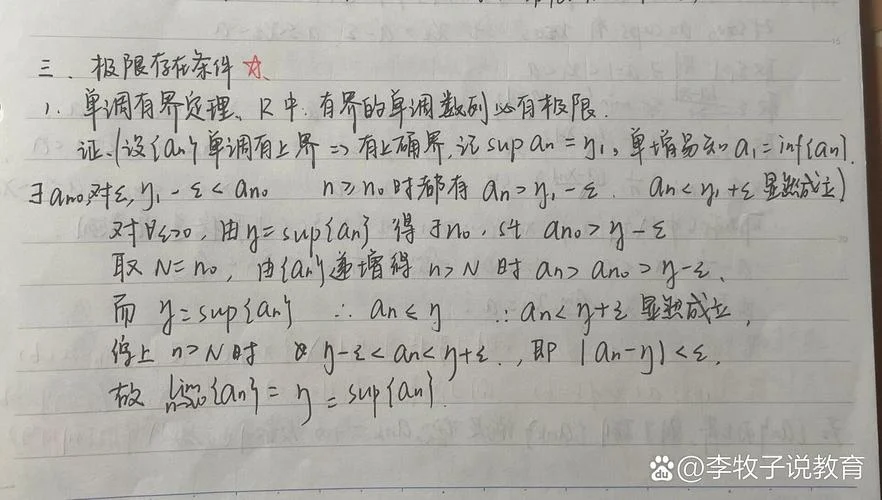 三、极限存在条件 ☆
1、单调有界定理、R中,有界的单调数列必有极限.
证、(设{an}单调有上界 => 有上确界,记 sup an = η1。单增易知 a1 = inf{an}.
∃ an0,对ε, η1 - ε < an0 n > n0 时都有 an > η1 - ε . an < η1 + ε 显然成立)
对∀ε>0,由η = sup{an} 得 ∃ n0 . st an0 > η - ε
取 N = n0,由{an}递增得 n > N 时 an > an0 > η - ε.
而 η = sup{an} ∴ an ≤ η ∴ an < η + ε 显然成立,
综上 n > N 时 η - ε < an < η + ε . ,即 |an - η| < ε.
故 lim n→∞ {an} = η = sup{an}.
Baidu @李牧子说教育